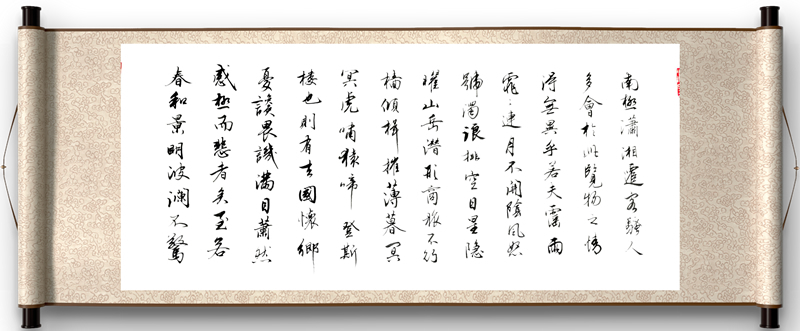 南極瀟湘遷客騷人
多會於此覽物之情
得無異乎若夫霪雨
霏々連月不開陰風怒
號濁浪排空日星隱
曜山岳潛形商旅不行
檣傾楫摧薄暮冥
冥虎嘯猿啼登斯
樓也則有去國懷鄉
憂讒畏譏滿目蕭然
感極而悲者矣至若
春和景明波瀾不驚